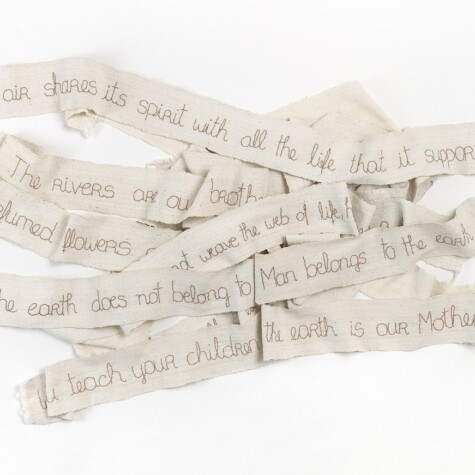 air shares its spirit with all the life that it support
The rivers are ou broth
flowers
weave the web of life,
he earth does not belong to
Man belongs to the earth
teach your children
the earth is our Mothe